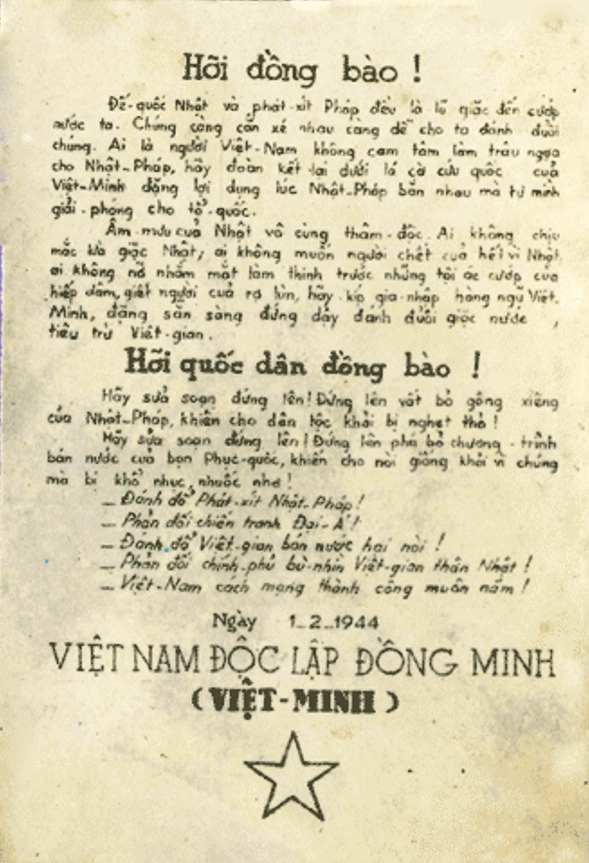 Hỡi đồng bào !
Đế-quốc Nhật và phát-xít Pháp đều là lũ giặc đến cướp
nước ta. Chúng càng cắn xé nhau càng dễ cho ta đánh đuổi
chúng. Ai là người Việt-Nam không cam tâm làm trâu ngựa
cho Nhật-Pháp, hãy đoàn kết lại dưới lá cờ cứu quốc của
Việt-Minh đặng lợi dụng lúc Nhật-Pháp bắn nhau mà tự mình
giải-phóng cho tổ-quốc.
Âm-mưu của Nhật vô cùng thâm-độc. Ai không chịu
mắc lừa giặc Nhật, ai không muốn người chết của hết vì Nhật,
ai không nỡ nhắm mắt làm thinh trước những tội ác cướp của
hiếp dâm, giết người của hãy kíp gia-nhập hàng ngũ Việt-
Minh, đặng sẵn sàng đứng dậy đánh đuổi giặc nước ,
tiễu trừ Việt-gian.
Hỡi quốc dân đồng bào !
Hãy sửa soạn đứng lên! Đứng lên vất bỏ gông xiềng
của Nhật-Pháp, khiến cho dân tộc khỏi bị nghẹt thở!
Hãy sửa soạn đứng lên! Đứng lên phá bỏ chương-trình
bán nước của bọn Phục-quốc, khiến cho nòi giống khỏi vì chúng
mà bị khổ nhục, nhuốc nhơ!
_ Đánh đổ Phát-xít Nhật-Pháp!
_ Phản đối chiến tranh Đại-Á!
_ Đánh đổ Việt-gian bán nước hại nòi !
_ Phản đối chính-phủ bù-nhìn Việt-gian thân Nhật !
_ Việt-Nam cách mạng thành công muôn năm!
Ngày 1_2_1944
VIỆT NAM ĐỘC LẬP ĐỒNG MINH
(VIỆT-MINH)